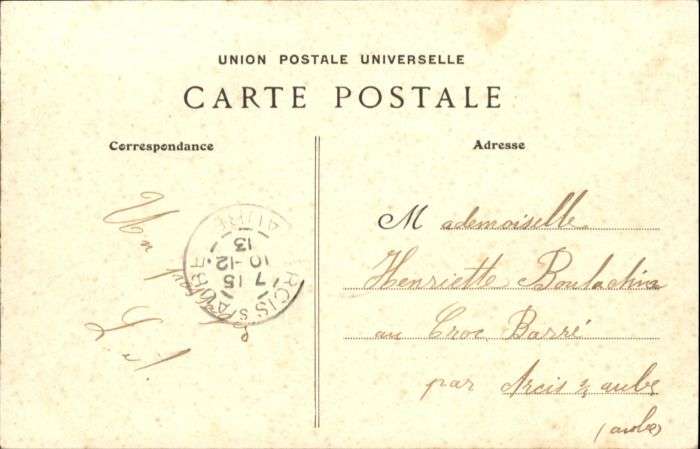 UNION POSTALE UNIVERSELLE
CARTE POSTALE
Correspondance
Adresse
Un
L.
Mademoiselle
Henriette
au Croc Barré
par Arcis s/ aube
(aube)
RCIS S/ AUBE
7 15
10-12
13
AUBE